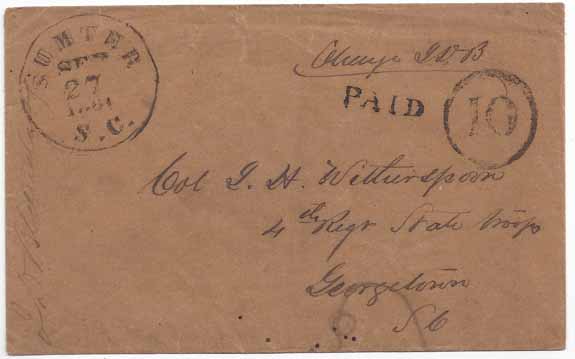 SUMTER
SEP
27
1861
S.C.
Charge
PAID
10
Col J. H. Witherspoon
4th Regt State troops
Georgetown
S C